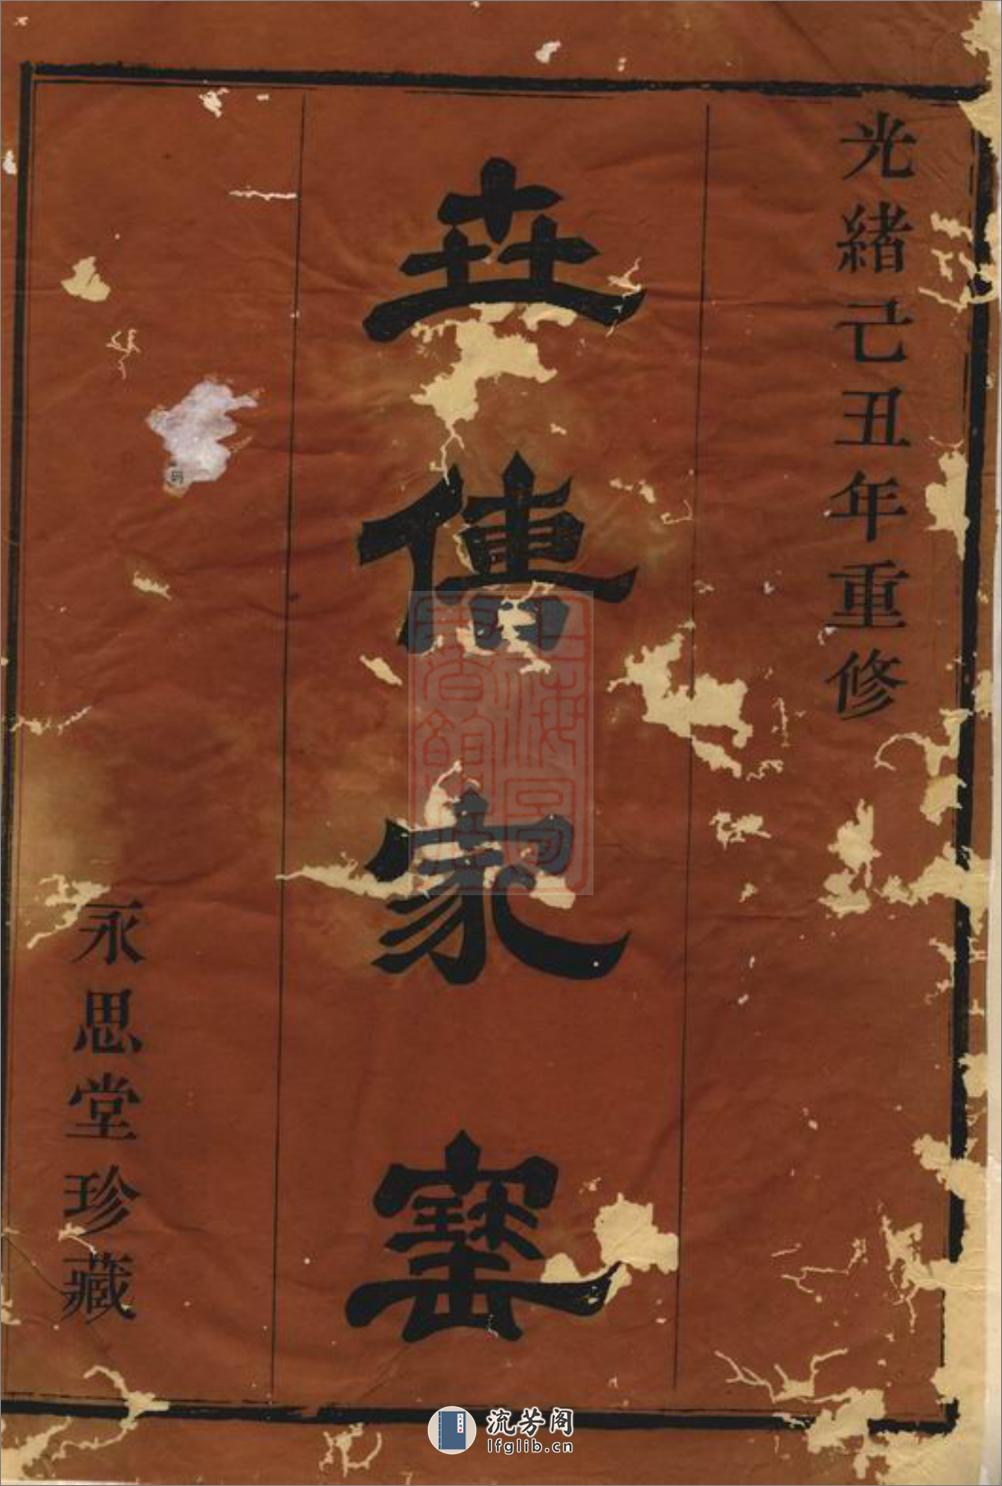 光緒己丑年重修
世傳家寶
永思堂珍藏
上海圖
書館藏
流芳阁
lfglib.cn